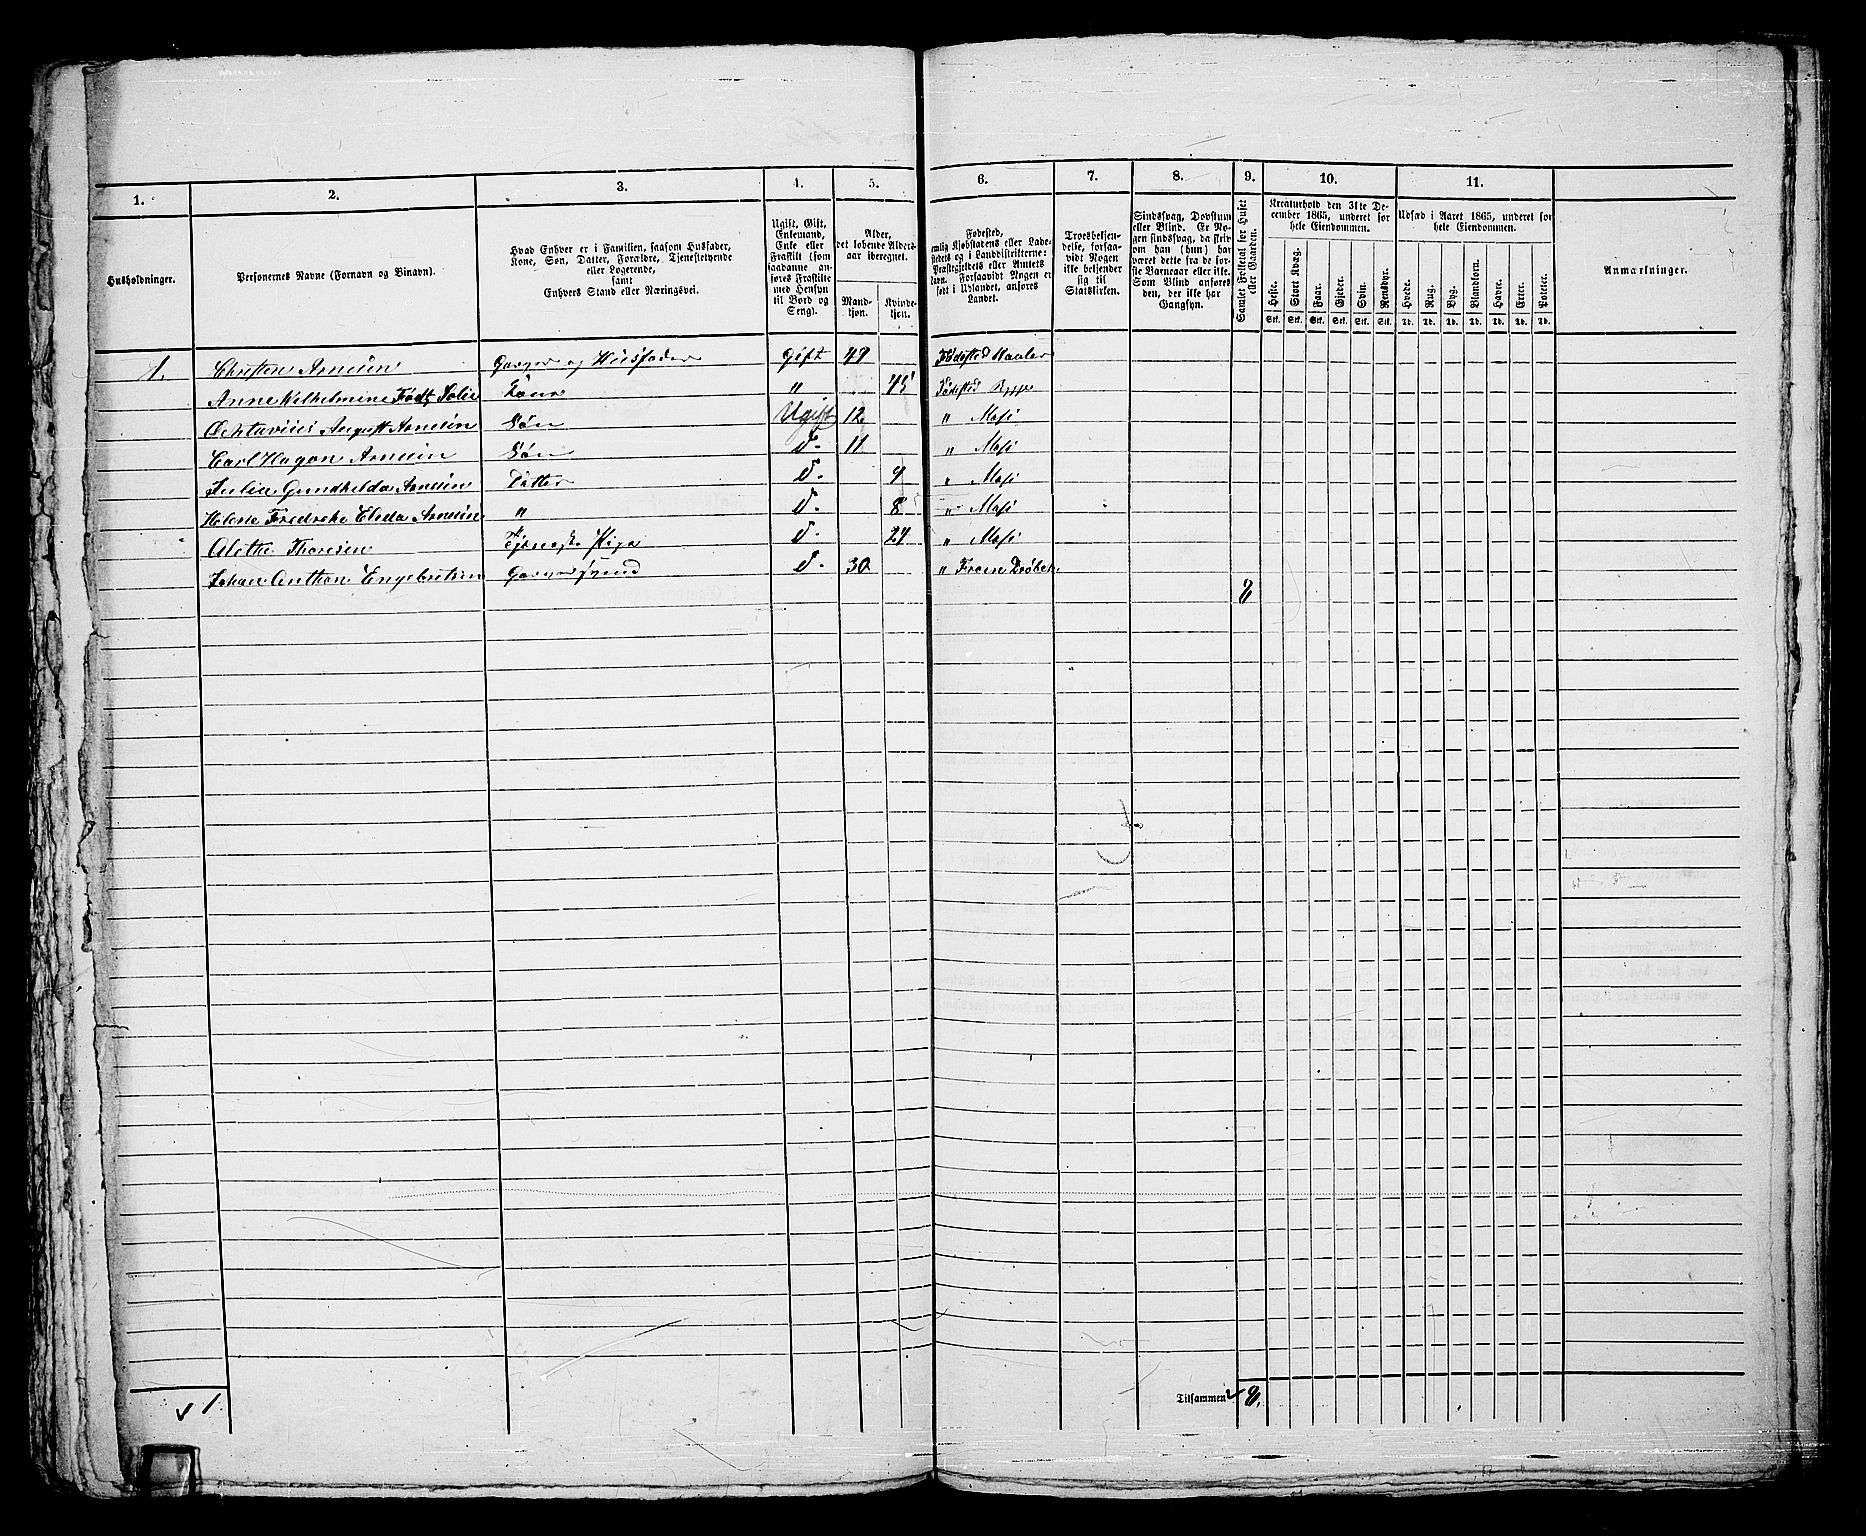 1. 2. 3. 4. 5. 6. 7. 8. 9. 10. 11.
Husholdninger.
Personernes Navne (Fornavn og Binavn).
Hvad Enhver er i Familien, saasom Husfader,
Kone, Søn, Datter, Forældre, Tjenestetyende
eller Logerende,
samt
Enhvers Stand eller Næringsvei.
Ugift, Gift,
Enkemand,
Enke eller
Fraskilt (som
saadanne an-
føres Fraskilte
med Hensyn
til Bord og
Seng).
Alder,
det løbende Alders-
aar iberegnet.
Mand-
kjøn.
Kvinde-
kjøn.
Fødested,
nemlig Kjøbstadens eller Lade-
stedets og i Landdistrikterne:
Præstegjeldets eller Amtets
Navn. Forsaavidt Nogen er
født i Udlandet, anføres
Landet.
Troesbekjen-
delse, forsaa-
vidt Nogen
ikke bekjender
sig til
Statskirken.
Sindssvag, Døvstum
eller Blind. Er No-
gen sindssvag, da skriv
om han (hun) har
været dette fra de før-
ste Barneaar eller ikke.
Som Blind anføres
den, der ikke har
Gangsyn.
Samlet Folketal for Huset
eller Gaarden.
Kreaturhold den 31te De-
cember 1865, underet for
hele Eiendommen.
Heste. Stort Kvæg. Faar. Gjeder. Svin. Rensdyr.
Stk. Stk. Stk. Stk. Stk. Stk.
Udsæd i Aaret 1865, underet for
hele Eiendommen.
Hvede. Rug. Byg. Blandkorn. Havre. Erter. Poteter.
Td. Td. Td. Td. Td. Td. Td.
Anmærkninger.
1. Christen Arnesen Garver og Huusfader Gift 49 Fødested Maaler
Anne Wilhelmine Født Solie Kone " 45 Fødested Rygge
Ochtavius August Arnesen Søn Ugift 12 " Moss
Carl Hagon Arnesen Søn d- 11 " Moss
Julie Gundhilda Arnesen Datter d- 9 " Moss
Helene Fredreke Elida Arnesen " d- 8 " Moss
Alethe Thoresen Tjeneste Pige d- 24 " Moss
Johan Anthon Engebretsen Garversvend d- 30 " Froen Drøbak
8
1
Tilsammen 8.